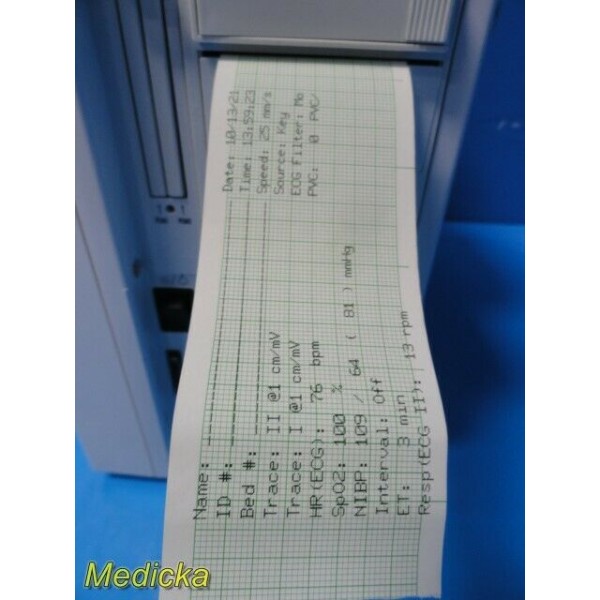 Name: ____________ Date: 10/13/21
ID #: ____________ Time: 13:59:23
Bed #: ____________ Speed: 25 mm/s
Trace: II @1 cm/mV Source: Key
Trace: I @1 cm/mV ECG Filter: Mo
HR(ECG): 76 bpm PVC: 0 PVC/
SpO2: 100 %
NIBP: 109 / 64 ( 81 ) mmHg
Interval: Off
ET: 3 min
Resp(ECG II): 13 rpm
Medicka